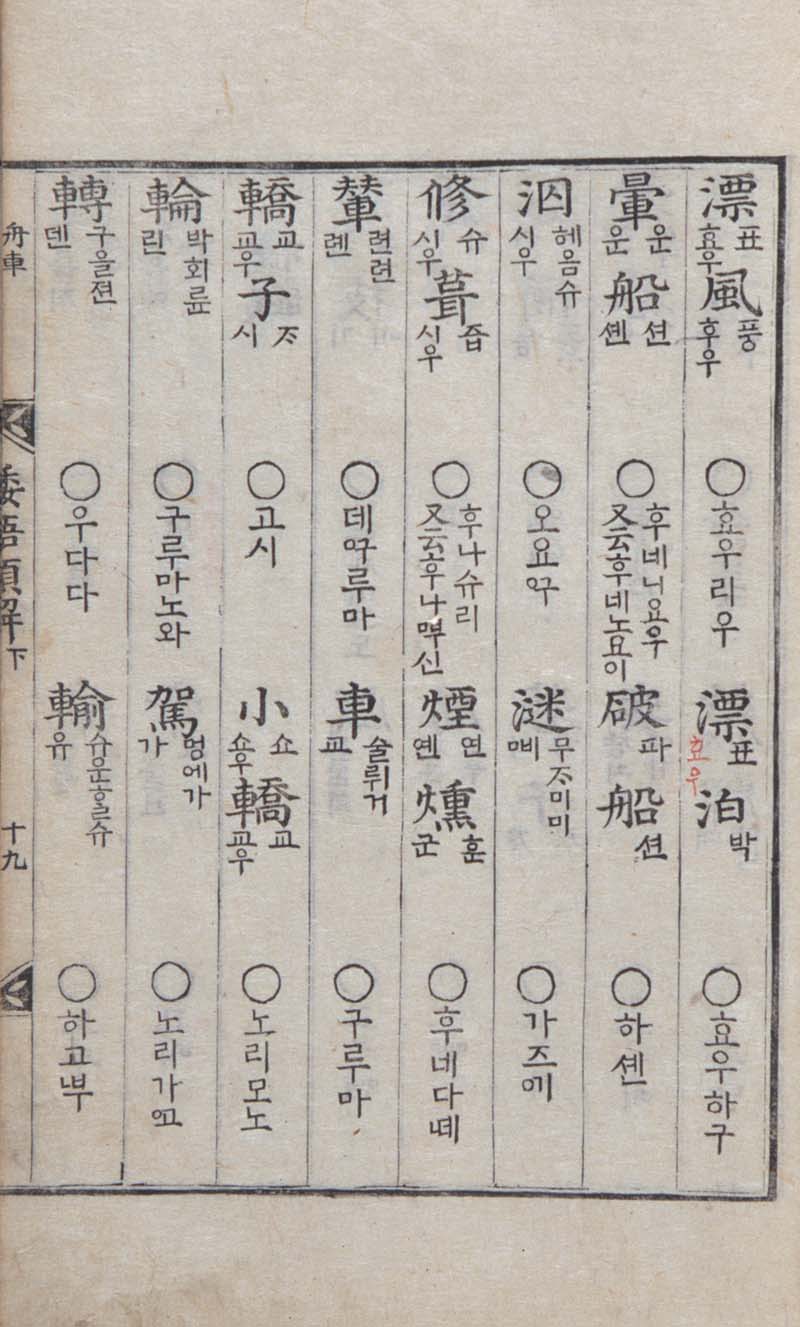 漂 표 효우 風 풍 후우 ○ 효우리우 漂 표 효우 泊 박 ○ 효우하구
暈 운 운 船 션 셴 ○ 후네니요우 又云후네노요이 破 파 船 션 ○ 하셴
泅 헤음슈 시우 ○ 오요 謎 무ᄌᆞ미미 ○ 가즈
修 슈 시우 葺 즙 시우 ○ 후나슈리 又云후나 신 煙 연 옌 燻 훈 군 ○ 후네다
輦 련련 롄 ○ 데 루마 車 술위거 교 ○ 구루마
轎 교 교우 子 ᄌᆞ 시 ○ 고시 小 쇼 쇼우 轎 교 교우 ○ 노리모노
輪 박회륜 린 ○ 구루마노와 駕 멍에가 가 ○ 노리가
轉 구을젼 뎬 ○ 우다다 輸 슈운ᄒᆞᆯ슈 유 ○ 하고
舟車 倭語類解下 十九